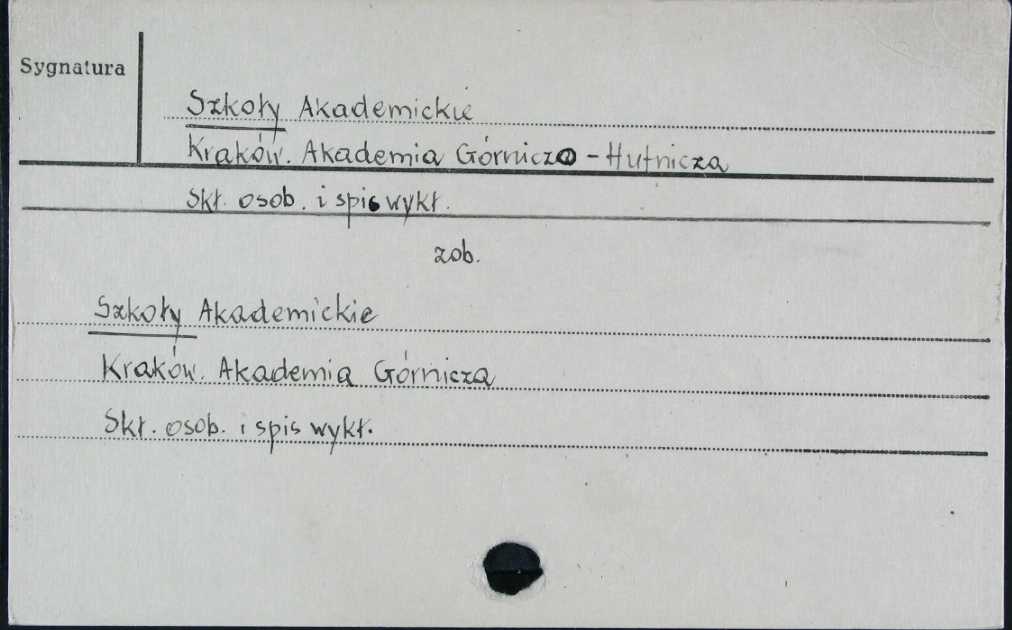 Sygnatura
Szkoły Akademickie
Kraków. Akademia Górniczo-Hutnicza
Skł. osob. i spis wykł.
zob.
Szkoły Akademickie
Kraków. Akademia Górnicza
Skł. osob. i spis wykł.